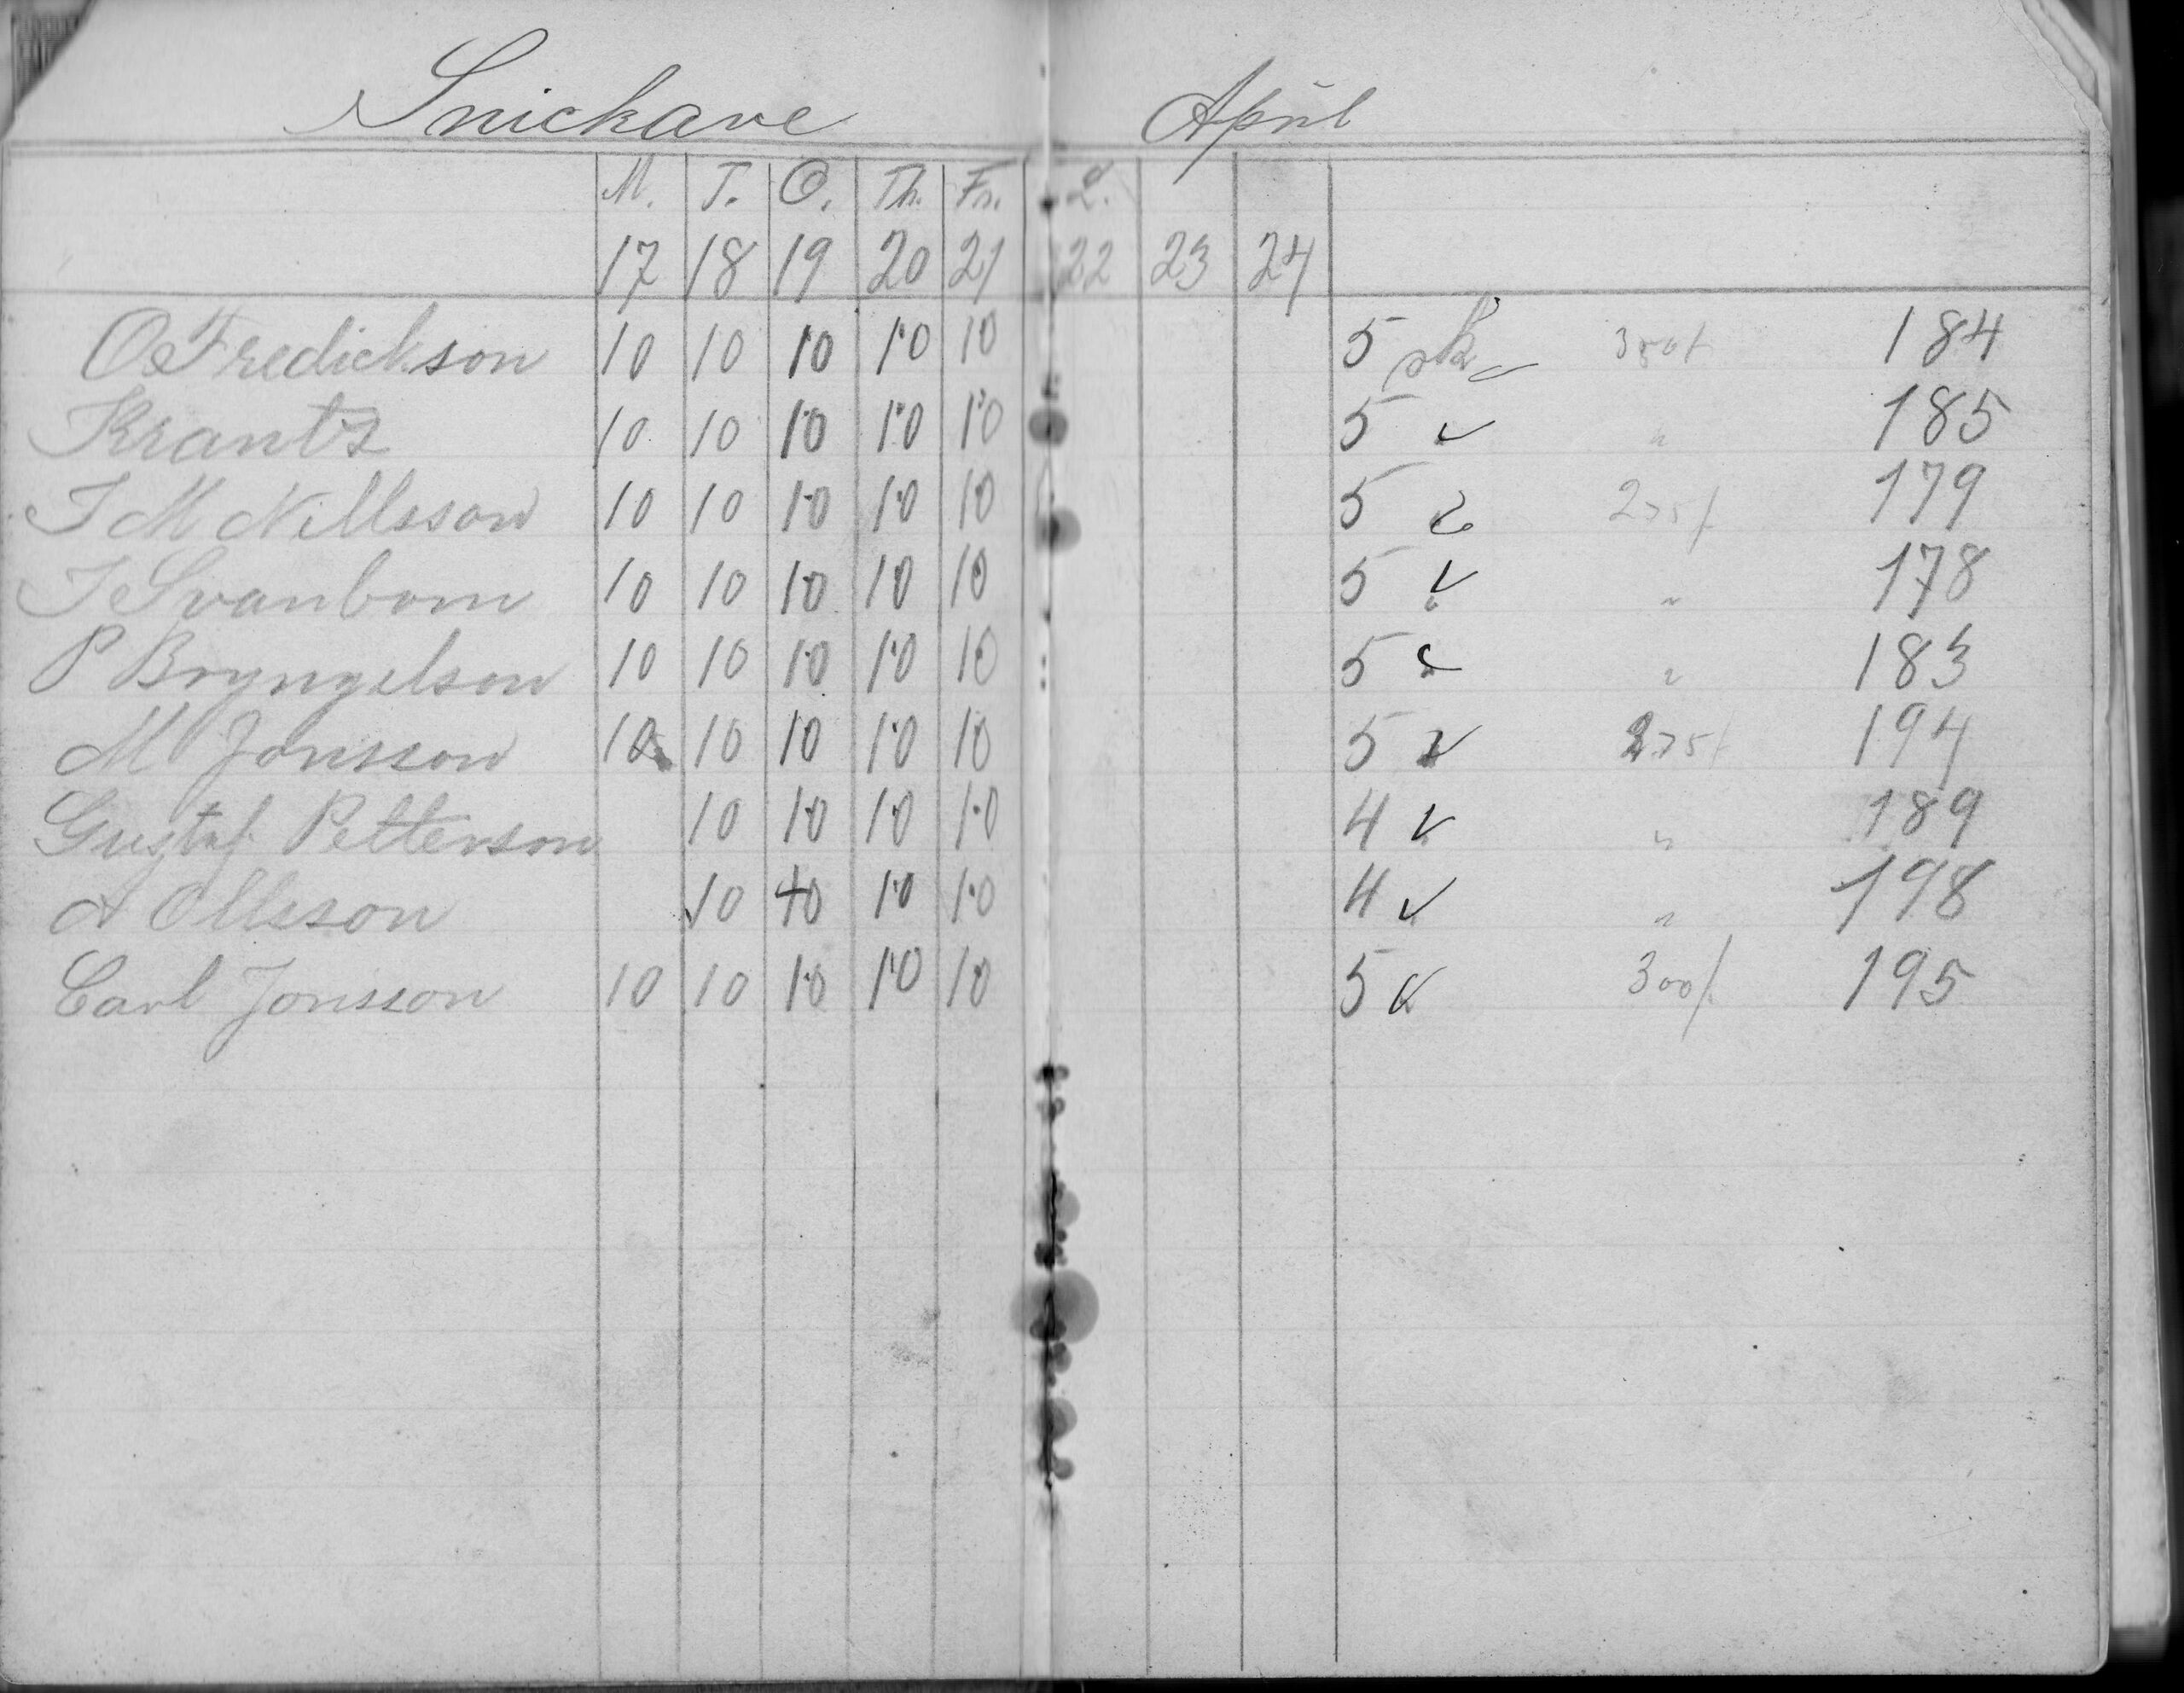 Snickare April
M. T. O. Th. Fr. L.
17 18 19 20 21 22 23 24
O Fredickson 10 10 10 10 10 5 184
Krantz 10 10 10 10 10 5 ✓ " 185
J M Nillsson 10 10 10 10 10 5 275/ 179
J Svanbom 10 10 10 10 10 5 ✓ " 178
P Bryngelson 10 10 10 10 10 5 ✓ " 183
M Jonsson 10 10 10 10 10 5 ✓ 275/ 194
Gustaf Petterson 10 10 10 10 4 ✓ " 189
A Olleson 10 10 10 10 4 ✓ " 198
Carl Jonsson 10 10 10 10 10 5 ✓ 300/ 195